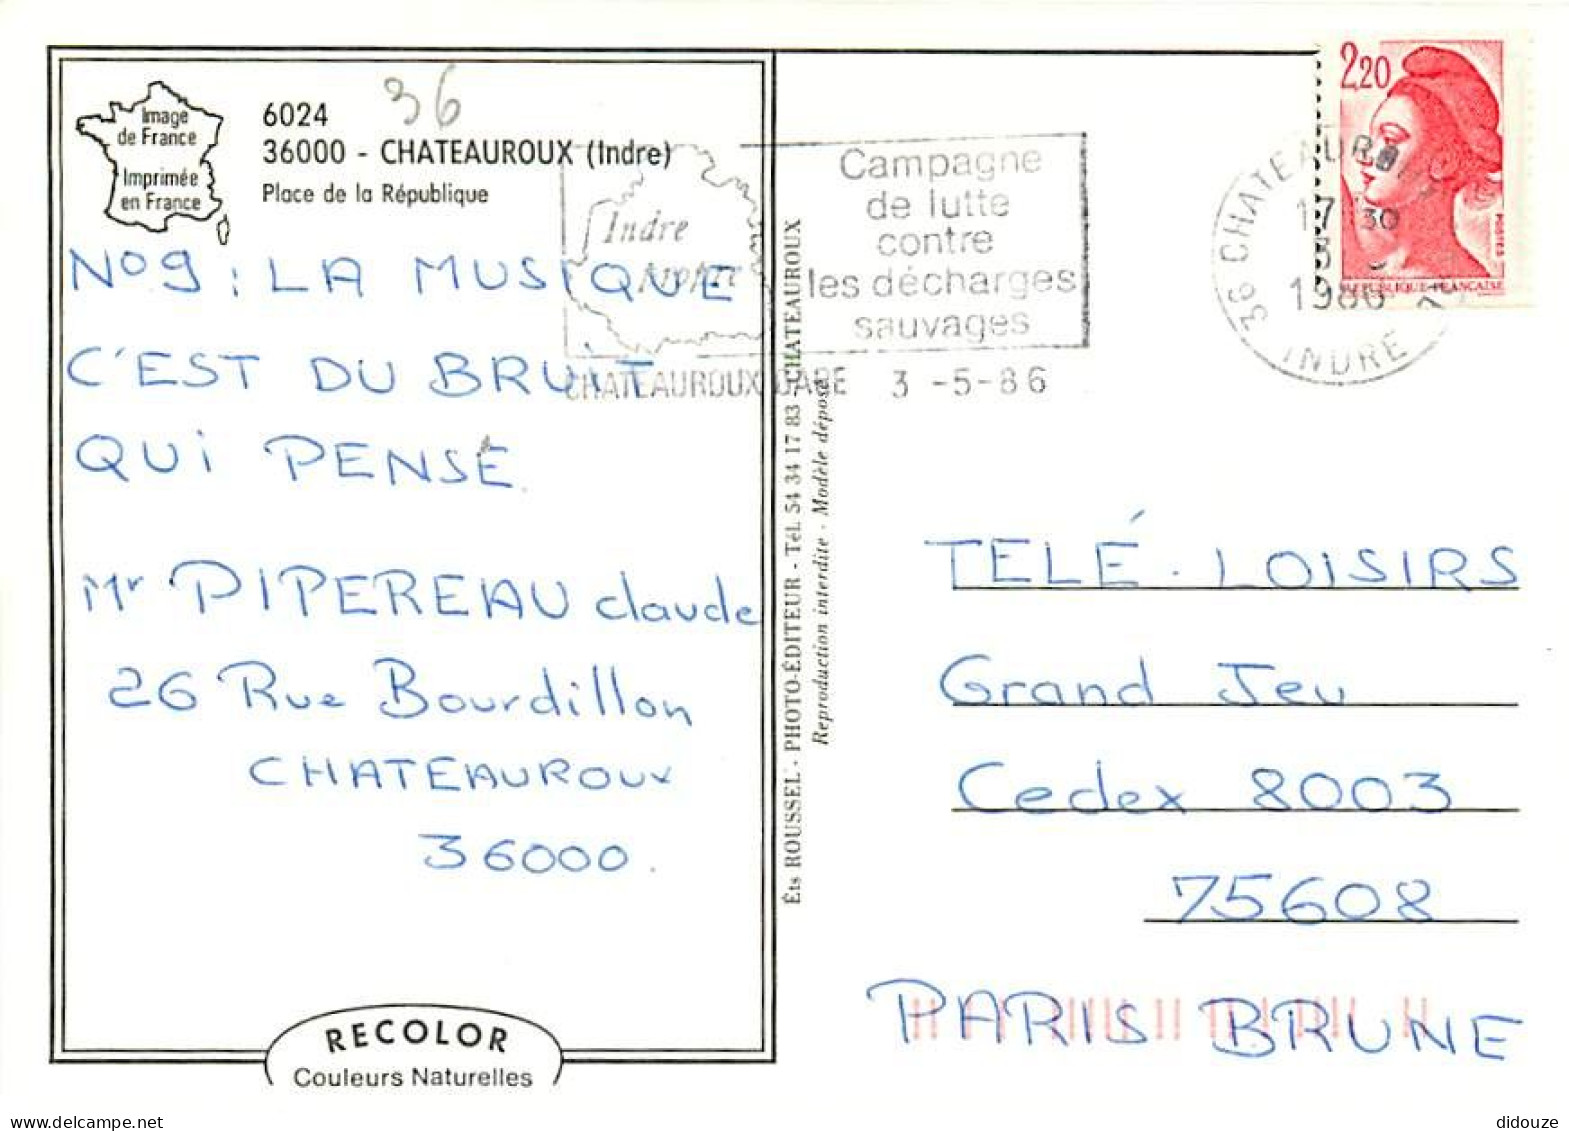 Image
de France
Imprimée
en France
6024
36
36000 - CHATEAUROUX (Indre)
Place de la République
N°9 : LA MUSIQUE
C'EST DU BRUIT
QUI PENSE
Mr PIPEREAU claude
26 Rue Bourdillon
CHATEAUROUX
36000.
RECOLOR
Couleurs Naturelles
Éts ROUSSEL - PHOTO-ÉDITEUR - Tél. 54 34 17 83 - CHATEAUROUX
Reproduction interdite - Modèle déposé
Indre
Campagne
de lutte
contre
les décharges
sauvages
CHATEAUROUX GARE 3 -5-86
36 CHATEAUROUX
17 30
1986
INDRE
2,20
RÉPUBLIQUE FRANÇAISE
POSTES
TELÉ - LOISIRS
Grand Jeu
Cedex 8003
75608
PARIS BRUNE
didouze